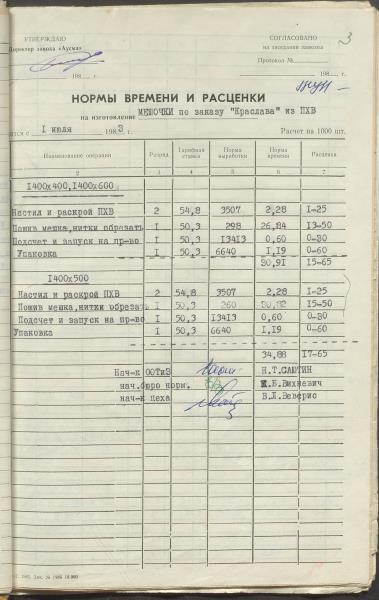 УТВЕРЖДАЮ
Директор завода «Аусма»
198 г.
СОГЛАСОВАНО
на заседании завкома
Протокол №
198 г.
3
НОРМЫ ВРЕМЕНИ И РАСЦЕНКИ
на изготовление МЕШОЧКИ по заказу "Краслава" из ПХВ
тся с I июля 1983 г. Расчет на 1000 шт.
Наименование операции Разряд Тарифная ставка Норма выработки Норма времени Расценка
2 3 4 5 6 7
I400х400,I400х600
Настил и раскрой ПХВ 2 54,8 3507 2,28 I-25
Пошив мешка,нитки обрезать I 50,3 298 26,84 I3-50
Подсчет и запуск на пр-во I 50,3 I34I3 0,60 0-30
Упаковка I 50,3 6640 I,I9 0-60
30,9I I5-65
I400х500
Настил и раскрой ПХВ 2 54,8 3507 2,28 I-25
Пошив мешка,нитки обрезать I 50,3 260 30,82 I5-50
Подсчет и запуск на пр-во I 50,3 I34I3 0,60 0-30
Упаковка I 50,3 6640 I,I9 0-60
34,88 I7-65
Нач-к ООТиЗ Н.Т.САВТИН
нач.бюро норм. Ж.Б.Вихневич
нач-к цеха В.Л.Веверис